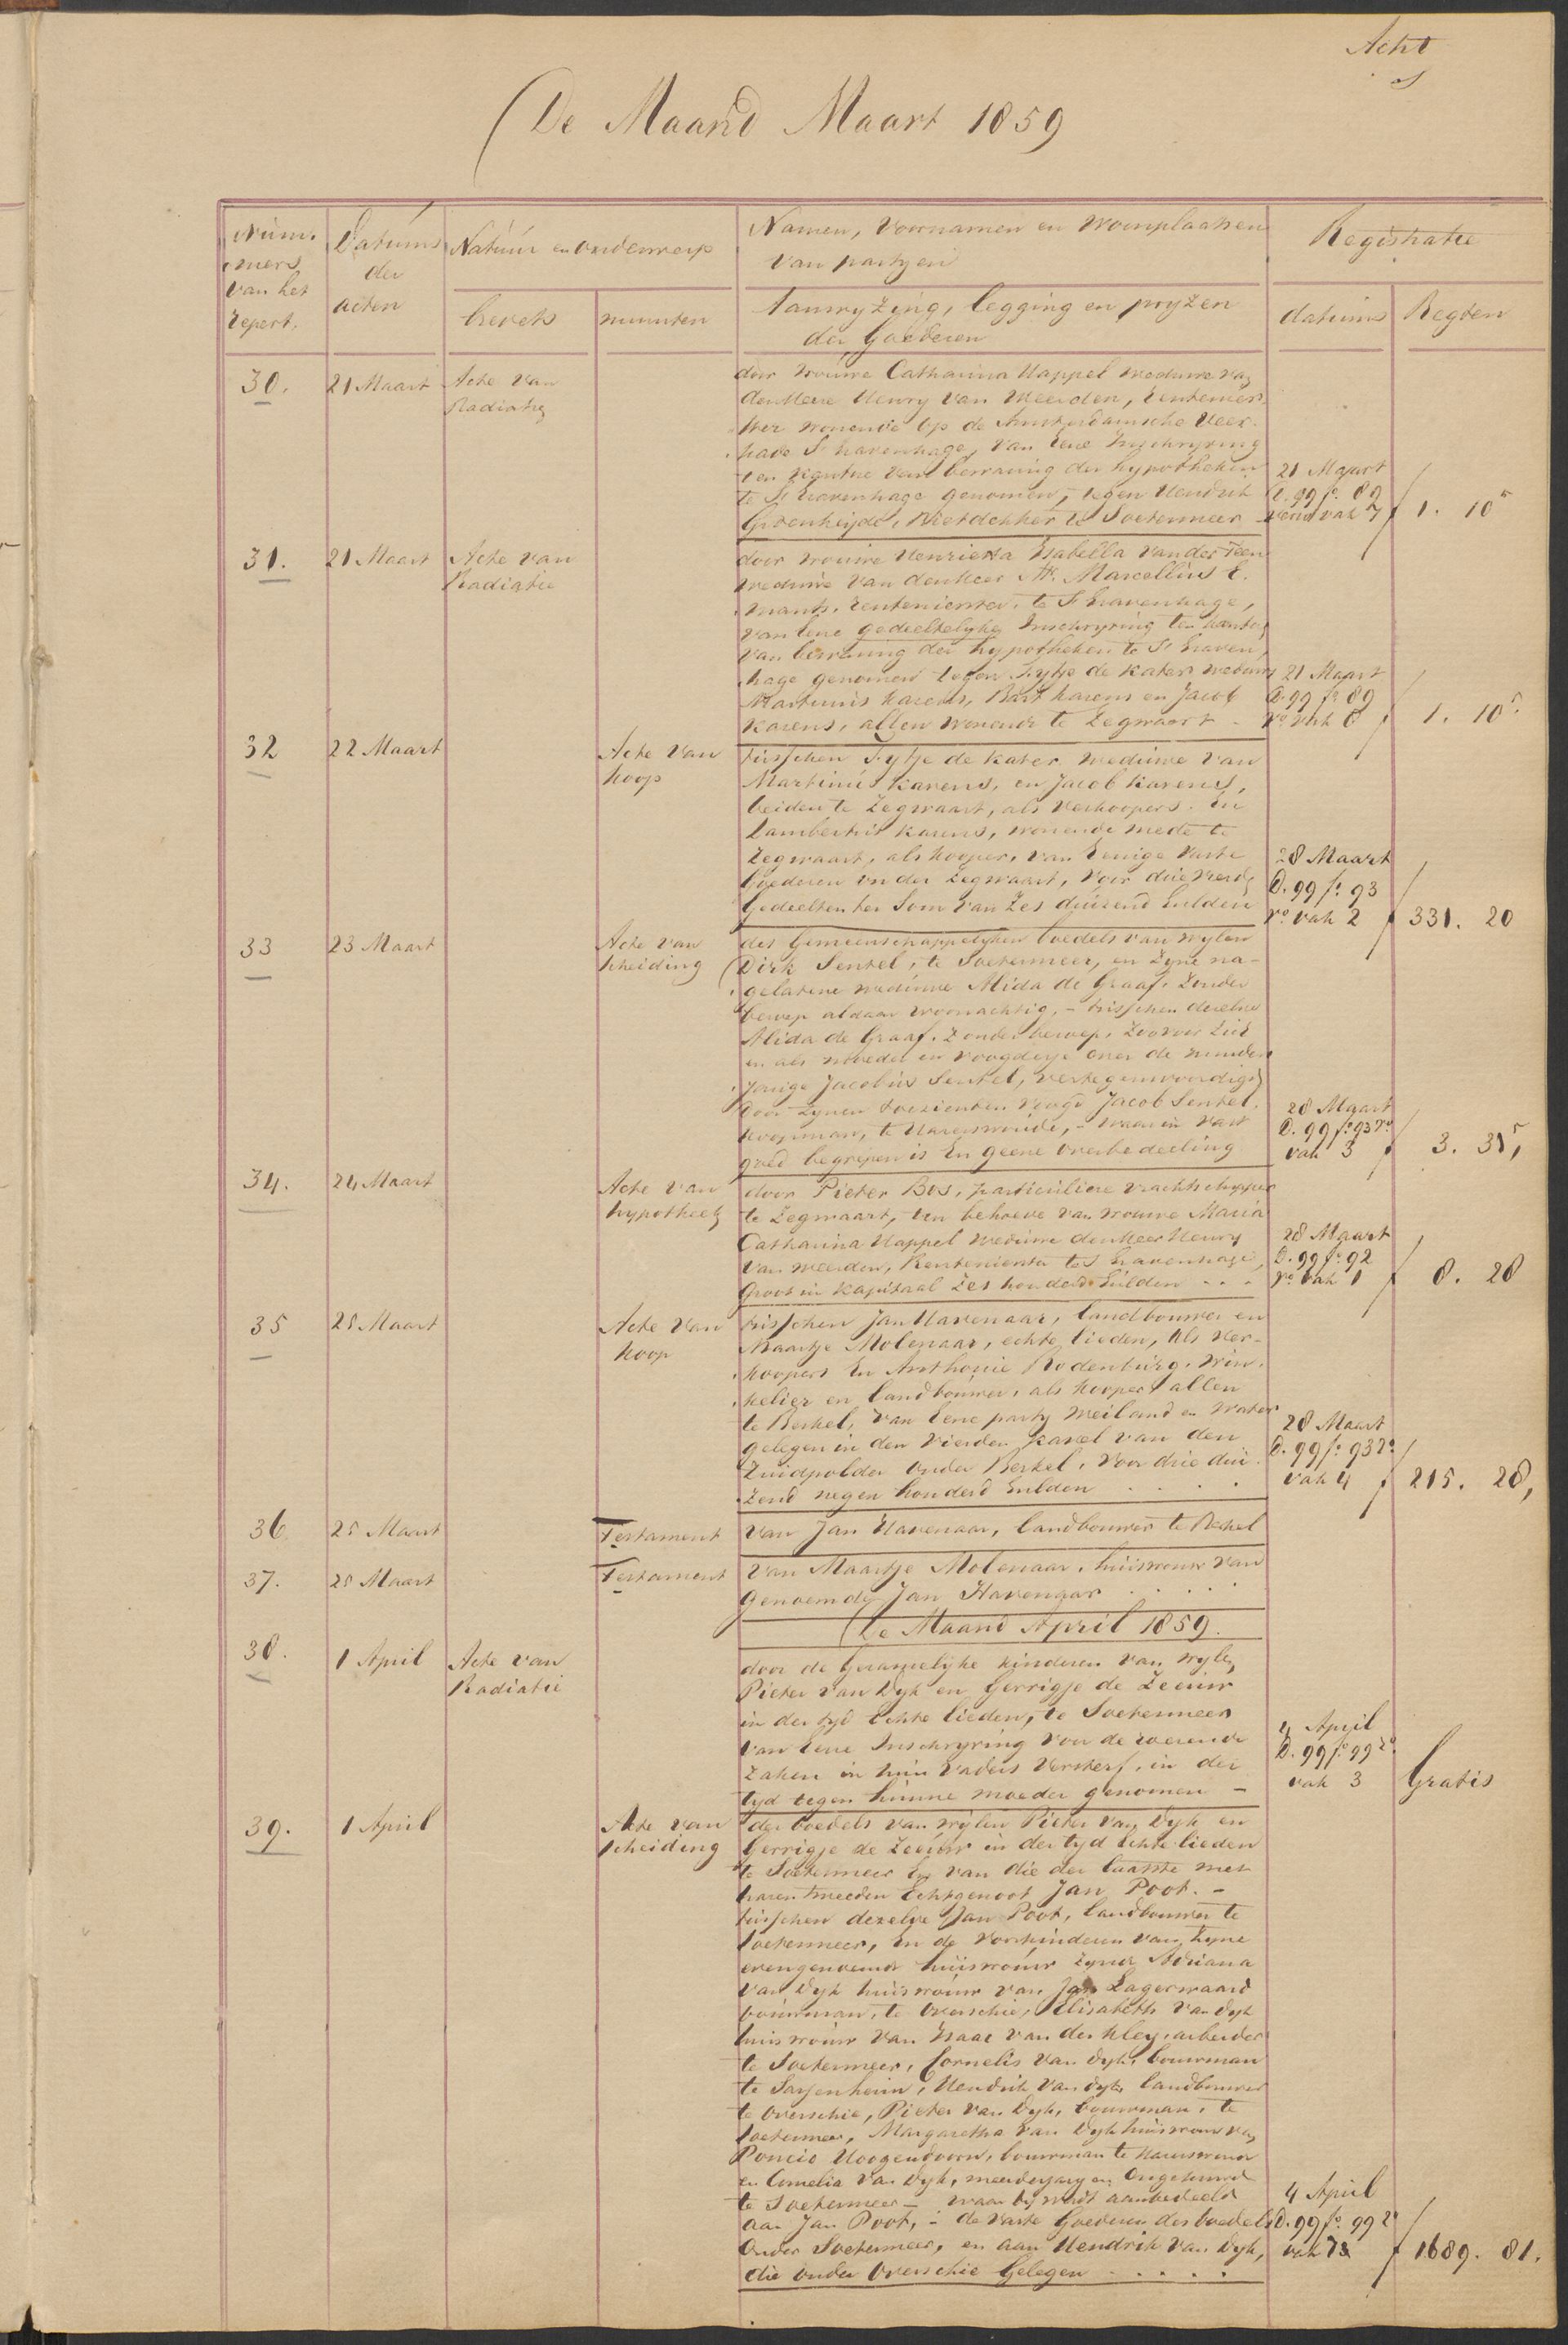 Acht
De Maand Maart 1859
Num-
mers
van het
Repert.
Datums
der
acten
Natuur en onderwerp
brevets
minuten
Namen, voornamen en woonplaatsen
van partyen
Aanwyzing, legging en pryzen
der Goederen
Registratie
datums
Regten
30.
21 Maart
Acte van
Radiatie
door vrouwe Catharina Happel weduwe van
den Heer Henry van Weerden, rentenier-
ster wonende op de Amsterdamsche Veer-
kade 's Gravenhage, van eene Inschryving
ten kantore van bewaring der hypotheken
te 's Gravenhage genomen, tegen Hendrik
Rietdekker te Soetermeer
21 Maart
D. 99 fo. 89
vak 7
1. 10 5
31.
21 Maart
Acte van
Radiatie
door vrouwe Henrietta Isabella van der Feen
weduwe van den Heer Mr. Marcellus E.
mants, rentenierster, te 's Gravenhage,
van eene gedeeltelyke Inschryving ten kantore
van bewaring der hypotheken te 's Graven-
hage genomen tegen Fytje de Kater weduwe
Martinus Karens, Bart Karens en Jacob
Karens, allen wonende te Zegwaart -
21 Maart
D. 99 fo 89
ro vak 8
f 1. 10 5.
32
22 Maart
Acte van
koop
tusschen Fytje de Kater weduwe van
Martinus Karens, en Jacob Karens,
beiden te Zegwaart, als verkoopers. En
Lambertus Karens, wonende mede te
Zegwaart, als kooper, van Eenige Vaste
Goederen onder Zegwaart, voor drie vierde
Gedeelten ter Som van Zes duizend Gulden
28 Maart
D. 99 fo. 93
ro vak 2
f 331. 20
33
23 Maart
Acte van
Scheiding
des Gemeenschappelyken boedels van wylen
Dirk Sentel, te Soetermeer, en Zyne na-
gelatene weduwe Alida de Graaf, Zonder
beroep aldaar woonachtig, - tusschen dezelve
Alida de Graaf. Zonder beroep, Zoo voor Zich
en als moeder en voogdesje over de minder-
jarige Jacobus Sentel, vertegenwoordigd
door Zynen toezienden voogd Jacob Sentel,
koopman, te Hazerswoude, - waarin vast
goed begrepen is En geene overbedeeling
28 Maart
D. 99 fo. 93 ro
vak 3
f 3. 31 5,
34.
24 Maart
Acte van
hypotheek
door Pieter Bos, particuliere vrachtschipper
te Zegwaart, ten behoeve van vrouwe Maria
Catharina Happel weduwe den Heer Henry
van Weerden, Rentenierster te 's Gravenhage,
Groot in kapitaal Zes honderd Gulden - - -
28 Maart
D. 99 fo 92
ro vak 1
f 8. 28
35
25 Maart
Acte van
koop
tusschen Jan Havenaar, landbouwer en
Maartje Molenaar, echte lieden, als ver-
koopers En Anthonie Rodenburg, win-
kelier en landbouwer, als kooper allen
te Berkel, van Eene party weiland en water
gelegen in den Vierden kavel van den
Zuidpolder onder Berkel, voor drie dui-
zend negen honderd Gulden - - - -
28 Maart
D. 99 fo. 93 ro
vak 4
f 215. 28,
36
25 Maart
Testament
van Jan Havenaar, landbouwer te Berkel
37.
25 Maart
Testament
van Maartje Molenaar, huisvrouw van
genoemde Jan Havenaar . . . . .
De Maand April 1859.
38.
1 April
Acte van
Radiatie
door de Gezamelyke kinderen van wylen
Pieter van Dyk en Gerrigje de Zeeuw
in der tyd Echte lieden, te Soetermeer
van Eene Inschryving voor de roerende
Zaken in hun Vaders Versterf, in der
tyd tegen hunne moeder genomen -
4 April
D. 99 fo. 99 ro
vak 3
Gratis
39.
1 April
Acte van
Scheiding
der boedels van wylen Pieter van Dyk en
Gerrigje de Zeeuw in der tyd Echte lieden
te Soetermeer En van die der laatste met
haren tweeden Echtgenoot Jan Poot. -
tusschen dezelve Jan Poot, landbouwer te
Soetermeer, En de Voorkinderen van Zyne
evengenoemde huisvrouw Zynde Adriana
van Dyk huisvrouw van Jan Lagerwaard
bouwman, te Overschie, Elisabeth van Dyk
huisvrouw van Isaac van der Kley, arbeider
te Soetermeer, Cornelis van Dyk, bouwman
te Sassenheim, Hendrik van Dyk, landbouwer
te Overschie, Pieter van Dyk, bouwman, te
Soetermeer, Margaretha van Dyk huisvrouw van
Poncio Hoogendoorn, bouwman te Hazerswoude
en Cornelia van Dyk, meerderjarig en Ongehuwd
te Soetermeer - waarby wordt aanbedeeld
aan Jan Poot, - de Vaste Goederen des boedels
Onder Soetermeer, en aan Hendrik van Dyk,
die onder Overschie Gelegen - . . . .
4 April
D. 99 fo. 99 ro
vak
f 1689. 81.